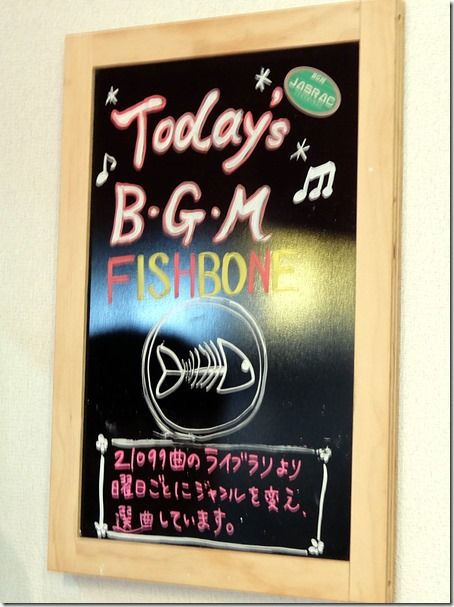 BGM
JASRAC
Today's
B・G・M
FISHBONE
21099曲のライブラリより
曜日ごとにジャンルを変え、
選曲しています。